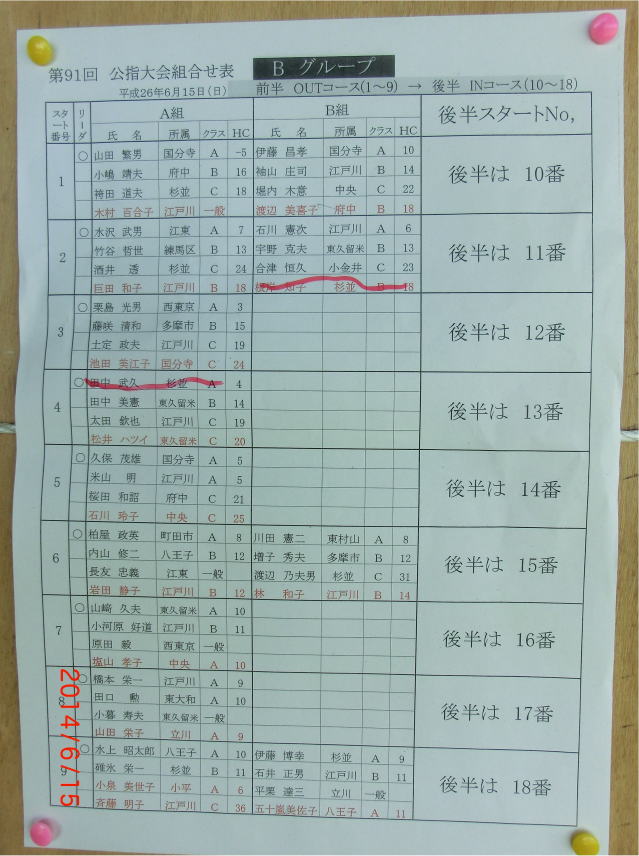 第91回 公指大会組合せ表 B グループ
平成26年6月15日(日) 前半 OUTコース(1～9) → 後半 INコース(10～18)
スタート番号 リーダ A組 B組 後半スタートNo,
氏 名 所属 クラス HC 氏 名 所属 クラス HC
1 ○ 山田 繁男 国分寺 A -5 伊藤 昌孝 国分寺 A 10 後半は 10番
小嶋 靖夫 府中 B 16 袖山 庄司 江戸川 B 14
袴田 道夫 杉並 C 18 堀内 木意 中央 C 22
木村 百合子 江戸川 一般 渡辺 美喜子 府中 B 18
2 ○ 水沢 武男 江東 A 7 石川 憲次 江戸川 A 6 後半は 11番
竹谷 哲世 練馬区 B 13 宇野 克夫 東久留米 B 13
酒井 透 杉並 C 24 合津 恒久 小金井 C 23
巨田 和子 江戸川 B 18 根岸 知子 杉並 B 18
3 ○ 栗島 光男 西東京 A 3 後半は 12番
藤咲 清和 多摩市 B 15
土定 政夫 江戸川 C 19
池田 美江子 国分寺 C 24
4 ○ 田中 武久 杉並 A 4 後半は 13番
田中 美憲 東久留米 B 14
太田 欽也 江戸川 C 19
松井 ハツイ 東久留米 C 20
5 ○ 久保 茂雄 国分寺 A 5 後半は 14番
米山 明 江戸川 A 5
桜田 和韶 府中 C 21
石川 玲子 中央 C 25
6 ○ 柏屋 政英 町田市 A 8 川田 憲二 東村山 A 8 後半は 15番
内山 修二 八王子 B 12 増子 秀夫 多摩市 B 12
長友 忠義 江東 一般 渡辺 乃夫男 杉並 C 31
岩田 静子 江戸川 B 12 林 和子 江戸川 B 14
7 ○ 山﨑 久夫 東久留米 A 10 後半は 16番
小河原 好道 江戸川 B 11
原田 毅 西東京 一般
塩山 孝子 中央 A 10
8 ○ 橋本 栄一 江戸川 A 9 後半は 17番
田口 勲 東大和 A 10
小暮 寿夫 東久留米 一般
山田 栄子 立川 A 9
9 ○ 水上 昭太郎 八王子 A 10 伊藤 博幸 杉並 A 9 後半は 18番
碓氷 栄一 杉並 B 11 石井 正男 江戸川 B 11
小泉 美世子 小平 A 6 平栗 達三 立川 一般
斉藤 明子 江戸川 C 36 五十嵐美佐子 八王子 A 11
2014/6/15